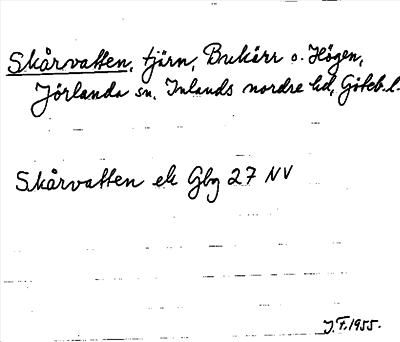 Skårvatten, tjärn, Bukärr o. Högen,
Jörlanda sn, Inlands nordre hd, Göteb. l.
Skårvatten ek Gbg 27 NV
J. F. 1955.